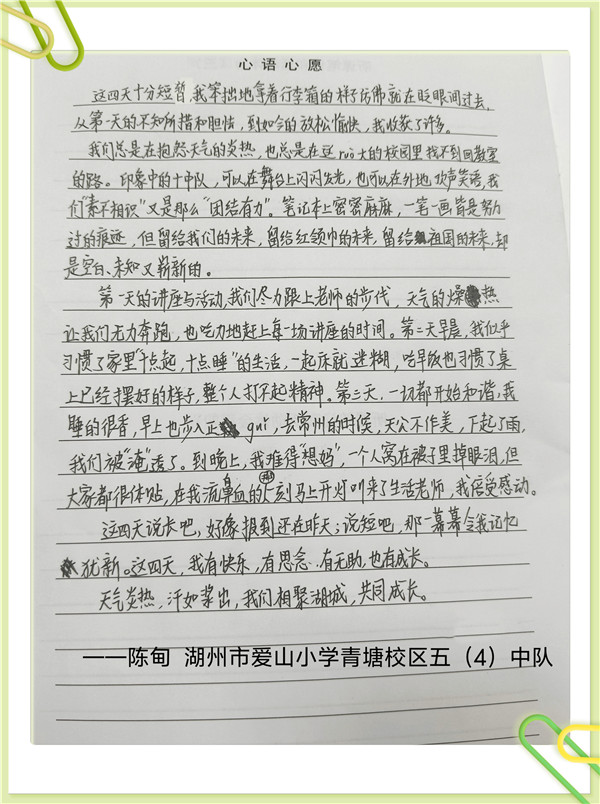 心语心愿
这四天十分短暂,我笨拙地拿着行李箱的样子仿佛就在眨眼间过去。
从第一天的不知所措和胆怯,到如今的放松愉快,我收获了许多。
我们总是在抱怨天气的炎热,也总是在这ruò大的校园里找不到回教室
的路。印象中的十中队,可以在舞台上闪闪发光,也可以在外地欢声笑语,我
们“素不相识”又是那么“团结有力”。笔记本上密密麻麻,一笔一画皆是努力
过的痕迹,但留给我们的未来,留给红领巾的未来,留给祖国的未来,却
是空白、未知又崭新的。
第一天的讲座与活动,我们尽力跟上老师的步伐,天气的燥热
让我们无力奔跑,也吃力地赶上每一场讲座的时间。第二天早晨,我似乎
习惯了家里“十点起,十点睡”的生活,一起床就迷糊,吃早饭也习惯了桌
上已经摆好的样子,整个人打不起精神。第三天,一切都开始和谐,我
睡的很香,早上也步入正guǐ,去常州的时候,天公不作美,下起了雨,
我们被“淹”透了。到晚上,我难得“想妈”,一个人窝在被子里掉眼泪,但
大家都很体贴,在我流鼻血的刻马上开灯叫来了生活老师,我倍受感动。
这四天说长吧,好像报到还在昨天;说短吧,那一幕幕令我记忆
犹新。这四天,我有快乐,有思念,有无助,也有成长。
天气炎热,汗如浆出,我们相聚湖城,共同成长。
——陈甸 湖州市爱山小学青塘校区五(4)中队